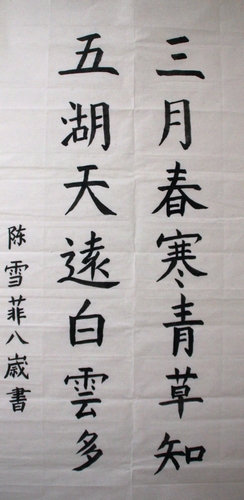 三月春寒青草知
五湖天遠白雲多
陈雪菲八歲書